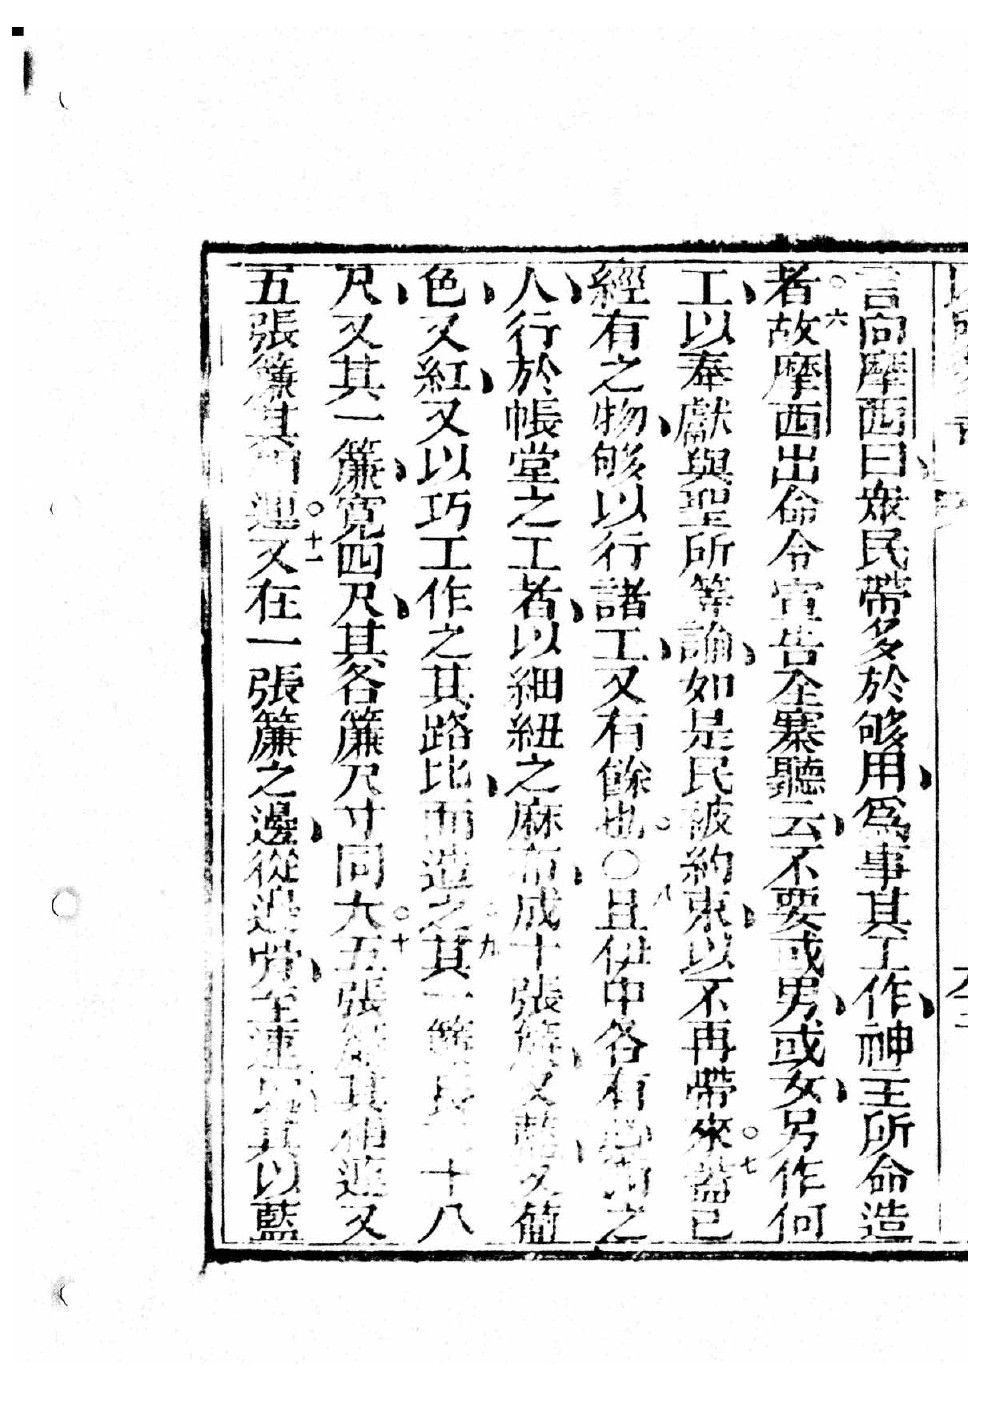 言向摩西曰衆民帶多於够用爲事其工作神主所命造
者○六故摩西出命令宣告全寨聽云不要或男或女另作何
工以奉獻與聖所等諭如是民被約束以不再帶來○七蓋已
經有之物够以行諸工又有餘也○八○且伊中各有心之
人行於帳堂之工者以細紐之麻布成十張簾又藍又葡
色又紅又以巧工作之其路比而造之○九其一簾長二十八
尺又其一簾寬四尺其各簾尺寸同大○十五張簾其相連又
五張簾其相連○十一又在一張簾之邊從邊骨至連處其以藍